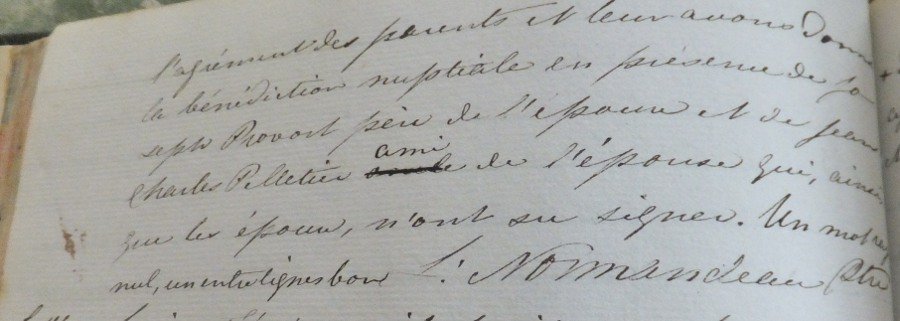 l'agrément des parents et leur avons donné
la bénédiction nuptiale en présence de Jo
seph Provost père de l'époux et de Jean
Charles Pelletier ami oncle de l'épouse qui, ainsi
que les époux, n'ont su signer. Un mot rayé
nul, un entre lignes bon L: Normandeau Ptre